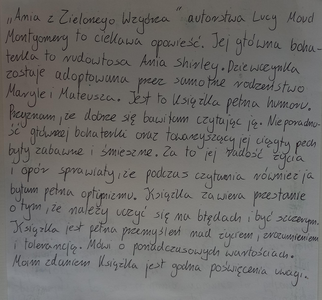 „Ania z Zielonego Wzgórza" autorstwa Lucy Maud
Montgomery to ciekawa opowieść. Jej główna boha-
terka to rudowłosa Ania Shirley. Dziewczynka
zostaje adoptowana przez samotne rodzeństwo
Marylę i Mateusza. Jest to książka pełna humoru.
Przyznam, że dobrze się bawiłam czytając ją. Nieporadno-
ść głównej bohaterki oraz towarzyszący jej ciągły pech
były zabawne i śmieszne. Za to jej radość życia
i upór sprawiały, że podczas czytania również ja
byłam pełna optymizmu. Książka zawiera przesłanie
o tym, że należy uczyć się na błędach i być szczerym.
Książka jest pełna przemyśleń nad życiem, zrozumieniem
i tolerancją. Mówi o ponadczasowych wartościach.
Moim zdaniem książka jest godna poświęcenia uwagi.